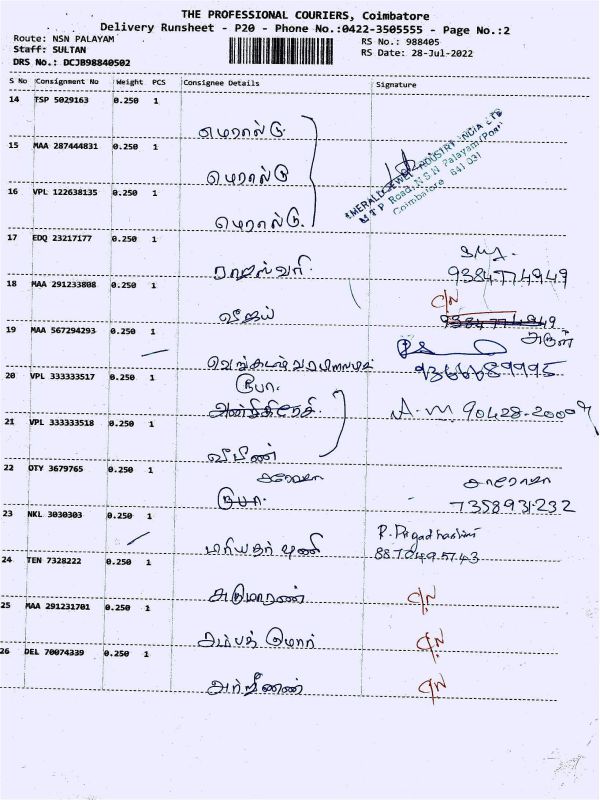 THE PROFESSIONAL COURIERS, Coimbatore
Delivery Runsheet - P20 - Phone No.:0422-3505555 - Page No.:2
Route: NSN PALAYAM
RS No.: 988405
Staff: SULTAN
RS Date: 28-Jul-2022
DRS No.: DCJB98840502
S No Consignment No Weight PCS Consignee Details Signature
14 TSP 5029163 0.250 1
எமரால்டு
15 MAA 287444831 0.250 1
எமரால்டு
EMERALD JEWEL INDUSTRY INDIA LTD
M T P Road, N.S.N Palayam (Post)
Coimbatore 641 031
16 VPL 122638135 0.250 1
எமரால்டு
17 EDQ 23217177 0.250 1
ராஜேஸ்வரி
9384774949
18 MAA 291233808 0.250 1
C/N
விஜய்
9384774949
அருள்
19 MAA 567294293 0.250 1
20 VPL 333333517 0.250 1
ரூபா.
A.M 90428-20009
21 VPL 333333518 0.250 1
விபிண்
22 OTY 3679765 0.250 1
ரூபா.
7358931232
23 NKL 3030303 0.250 1
24 TEN 7328222 0.250 1
C/N
25 MAA 291231701 0.250 1
C/N
26 DEL 70074339 0.250 1
C/N